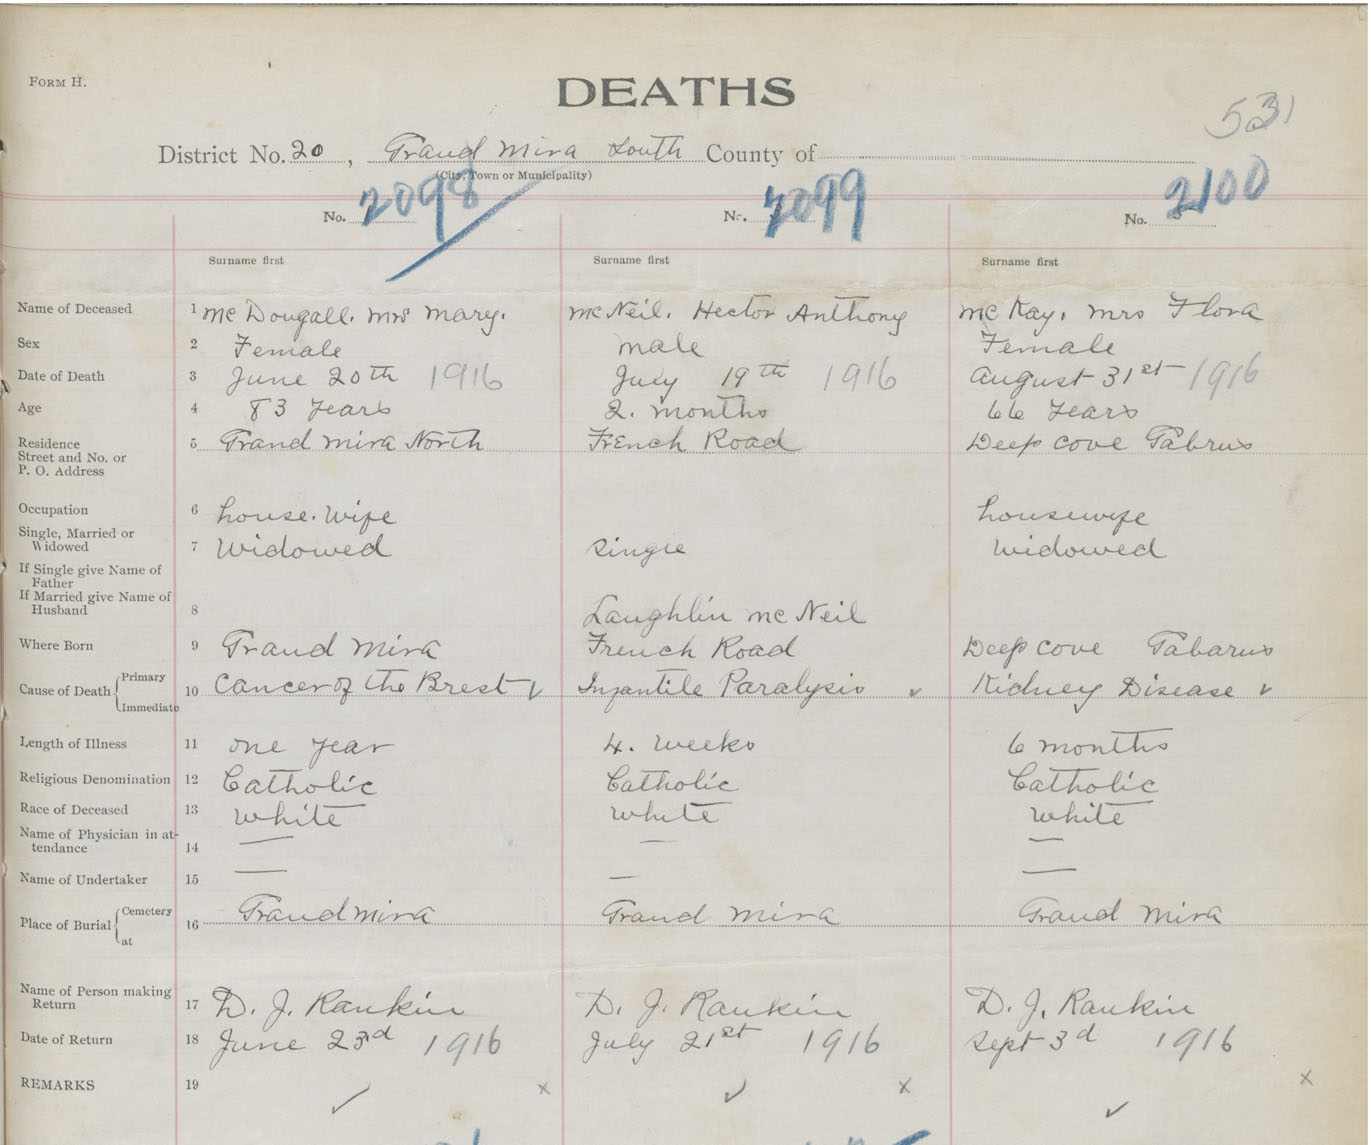 FORM H.
DEATHS
531
District No. 20, Grand Mira South County of
(City, Town or Municipality)
No. 2098 No. 2099 No. 2100
Surname first Surname first Surname first
Name of Deceased 1 Mc Dougall. Mrs Mary. McNeil. Hector Anthony Mc Kay, Mrs Flora
Sex 2 Female Male Female
Date of Death 3 June 20th 1916 July 19th 1916 August 31st 1916
Age 4 83 Years 2. Months 66 Years
Residence 5 Grand Mira North French Road Deep Cove Gabrus
Street and No. or
P. O. Address
Occupation 6 house. Wife housewife
Single, Married or
Widowed 7 Widowed Single Widowed
If Single give Name of
Father
If Married give Name of
Husband 8 Laughlin Mc Neil
Where Born 9 Grand Mira French Road Deep Cove Gabarus
Cause of Death Primary Immediate 10 Cancer of the Brest Infantile Paralysis Kidney Disease
Length of Illness 11 One Year 4. Weeks 6 Months
Religious Denomination 12 Catholic Catholic Catholic
Race of Deceased 13 White White White
Name of Physician in at-
tendance 14 — — —
Name of Undertaker 15 — — —
Place of Burial Cemetery at 16 Grand Mira Grand Mira Grand Mira
Name of Person making
Return 17 D. J. Rankin D. J. Rankin D. J. Rankin
Date of Return 18 June 23d 1916 July 21st 1916 Sept 3d 1916
REMARKS 19 x x x